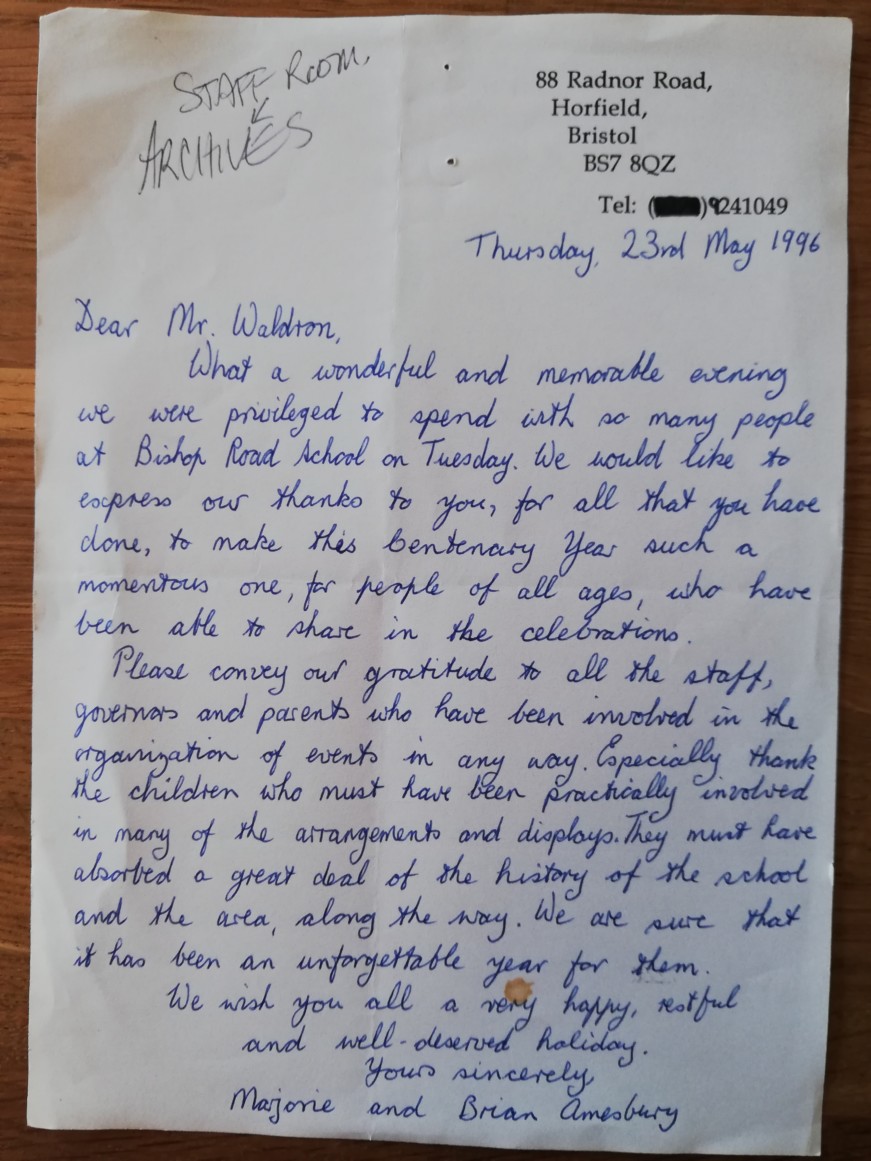 STAFF ROOM,
ARCHIVES
88 Radnor Road,
Horfield,
Bristol
BS7 8QZ
Tel: ( )9241049
Thursday, 23rd May 1996
Dear Mr. Waldron,
What a wonderful and memorable evening
we were privileged to spend with so many people
at Bishop Road School on Tuesday. We would like to
express our thanks to you, for all that you have
done, to make this Centenary Year such a
momentous one, for people of all ages, who have
been able to share in the celebrations.
Please convey our gratitude to all the staff,
governors and parents who have been involved in the
organization of events in any way. Especially thank
the children who must have been practically involved
in many of the arrangements and displays. They must have
absorbed a great deal of the history of the school
and the area, along the way. We are sure that
it has been an unforgettable year for them.
We wish you all a very happy, restful
and well-deserved holiday.
Yours sincerely,
Marjorie and Brian Amesbury